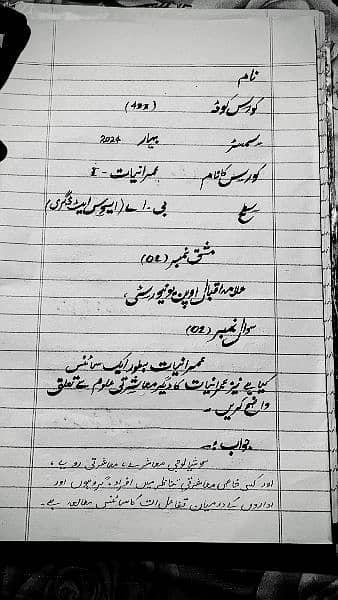 نام
کورس کوڈ (492)
سمسٹر بہار 2024
کورس کا نام عمرانیات - I
سطح بی-اے (ایسوسی ایٹ ڈگری)
مشق نمبر (02)
علامہ اقبال اوپن یونیورسٹی
سوال نمبر (02)
عمرانیات بطور ایک سائنس
کیا ہے نیز عمرانیات کا دیگر معاشرتی علوم سے تعلق
واضح کریں۔
جواب:-
سوشیالوجی معاشرے، معاشرتی رویے،
اور کسی خاص معاشرتی تناظر میں افراد، گروہوں اور
اداروں کے درمیان تعاملات کا سائنسی مطالعہ ہے۔